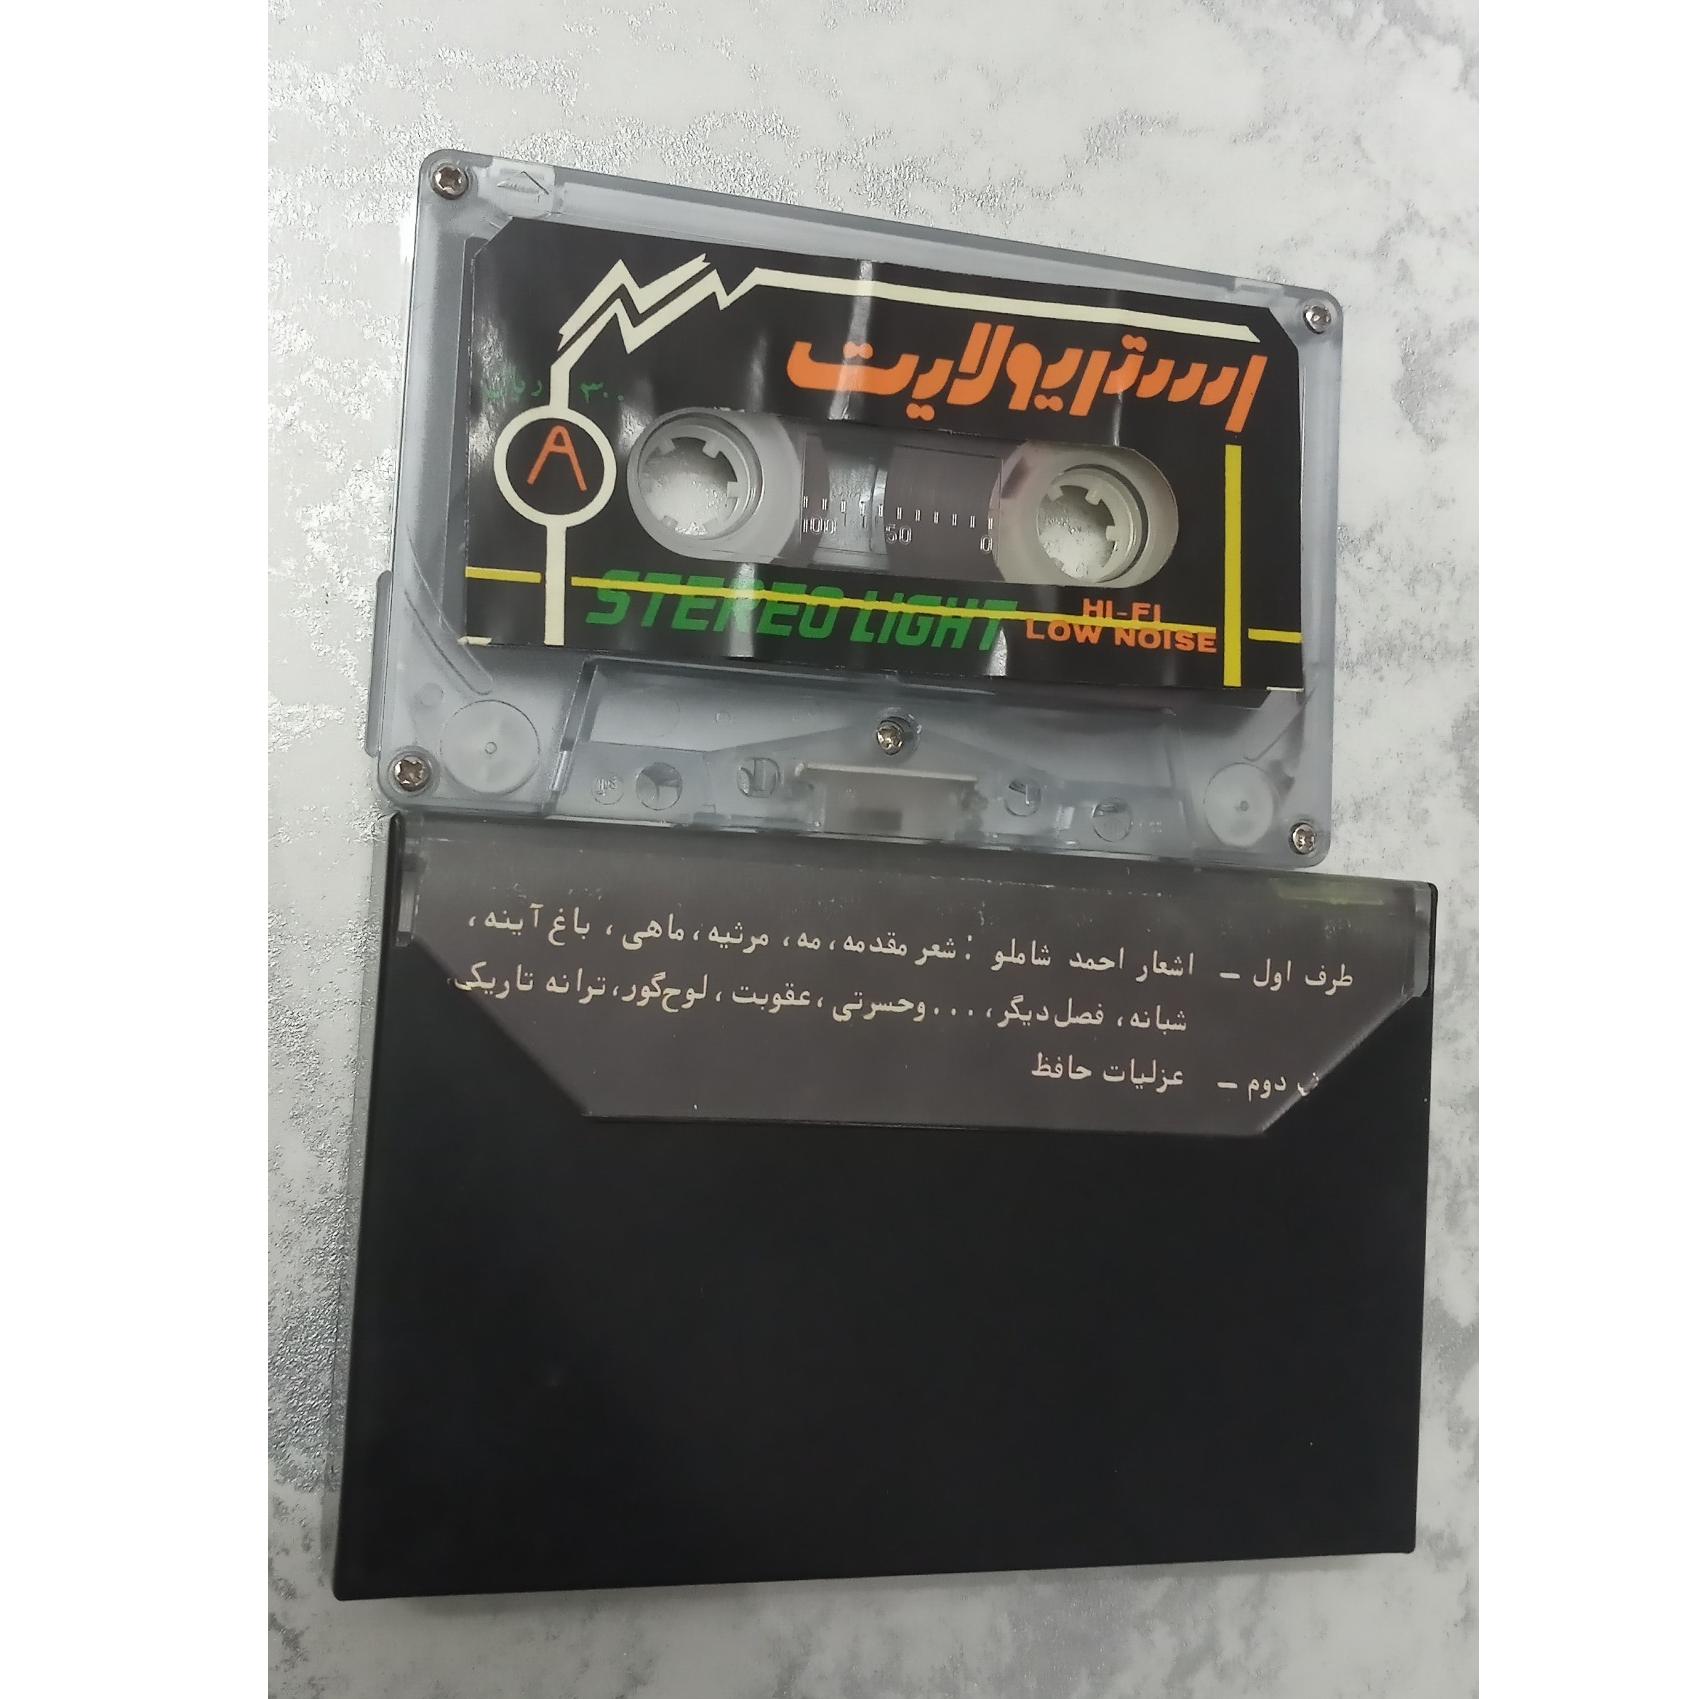 استریولایت
۳۰۰ ریال
A
100 50 0
STEREO LIGHT
HI-FI
LOW NOISE
طرف اول - اشعار احمد شاملو : شعر مقدمه، مه، مرثیه، ماهی، باغ آینه،
شبانه، فصل دیگر، ... وحسرتی، عقوبت، لوح گور، ترانه تاریکی،
دوم - عزلیات حافظ